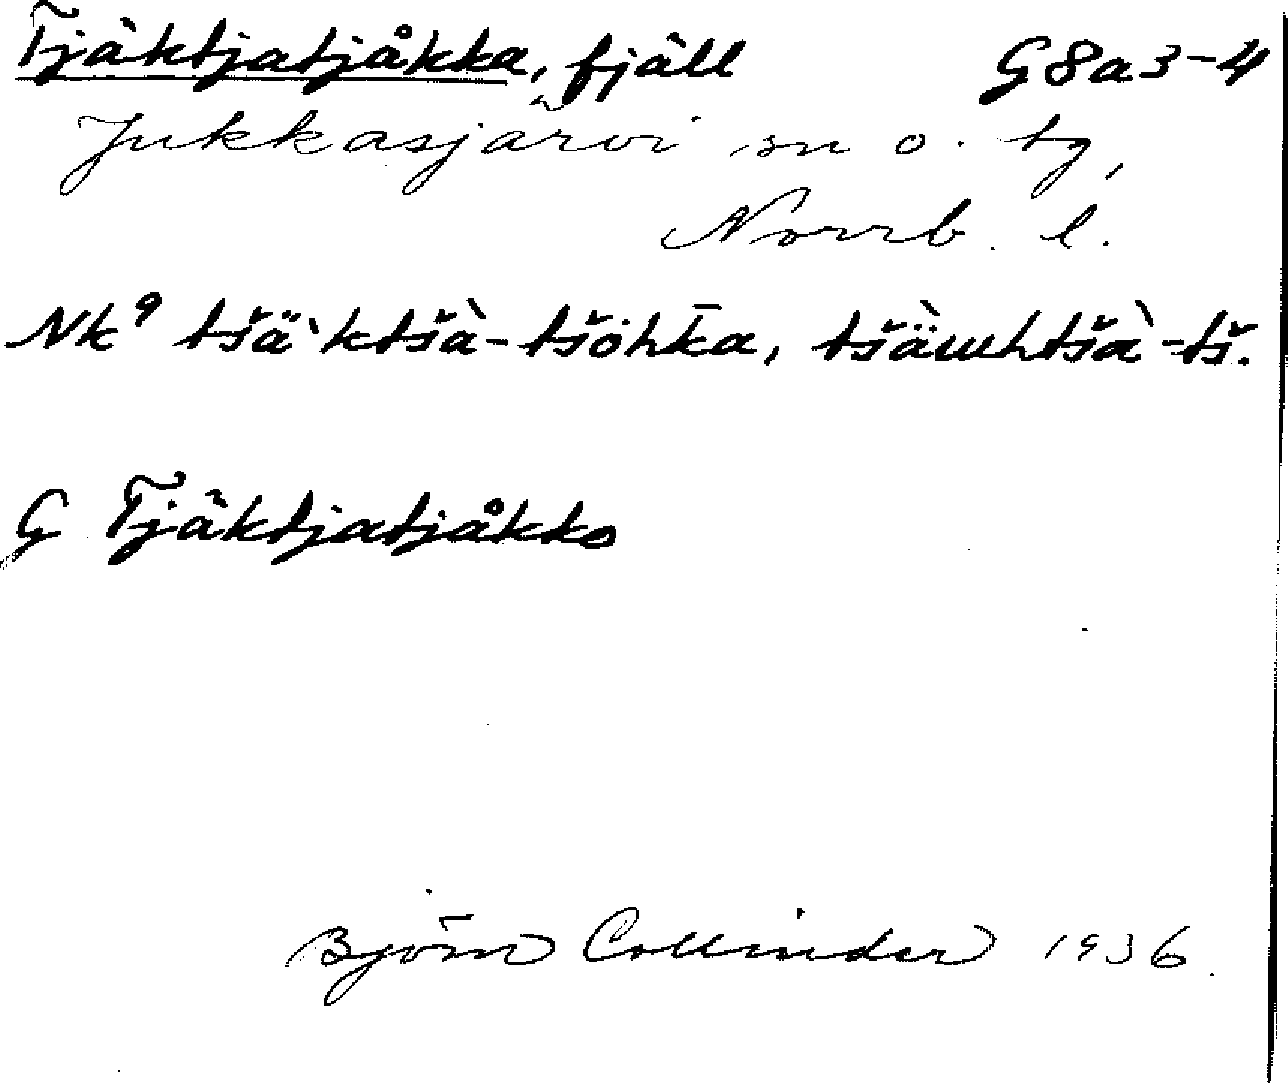 Tjäktjatjåkka, fjäll G8a3-4
Jukkasjärvi sn o. tg,
Norrb. l.
Nk⁹ tšä̀ktšà-tšòhk̄a, tšäwhtšà-tš.
G Tjäktjatjåkko
Björn Collinder 1936.